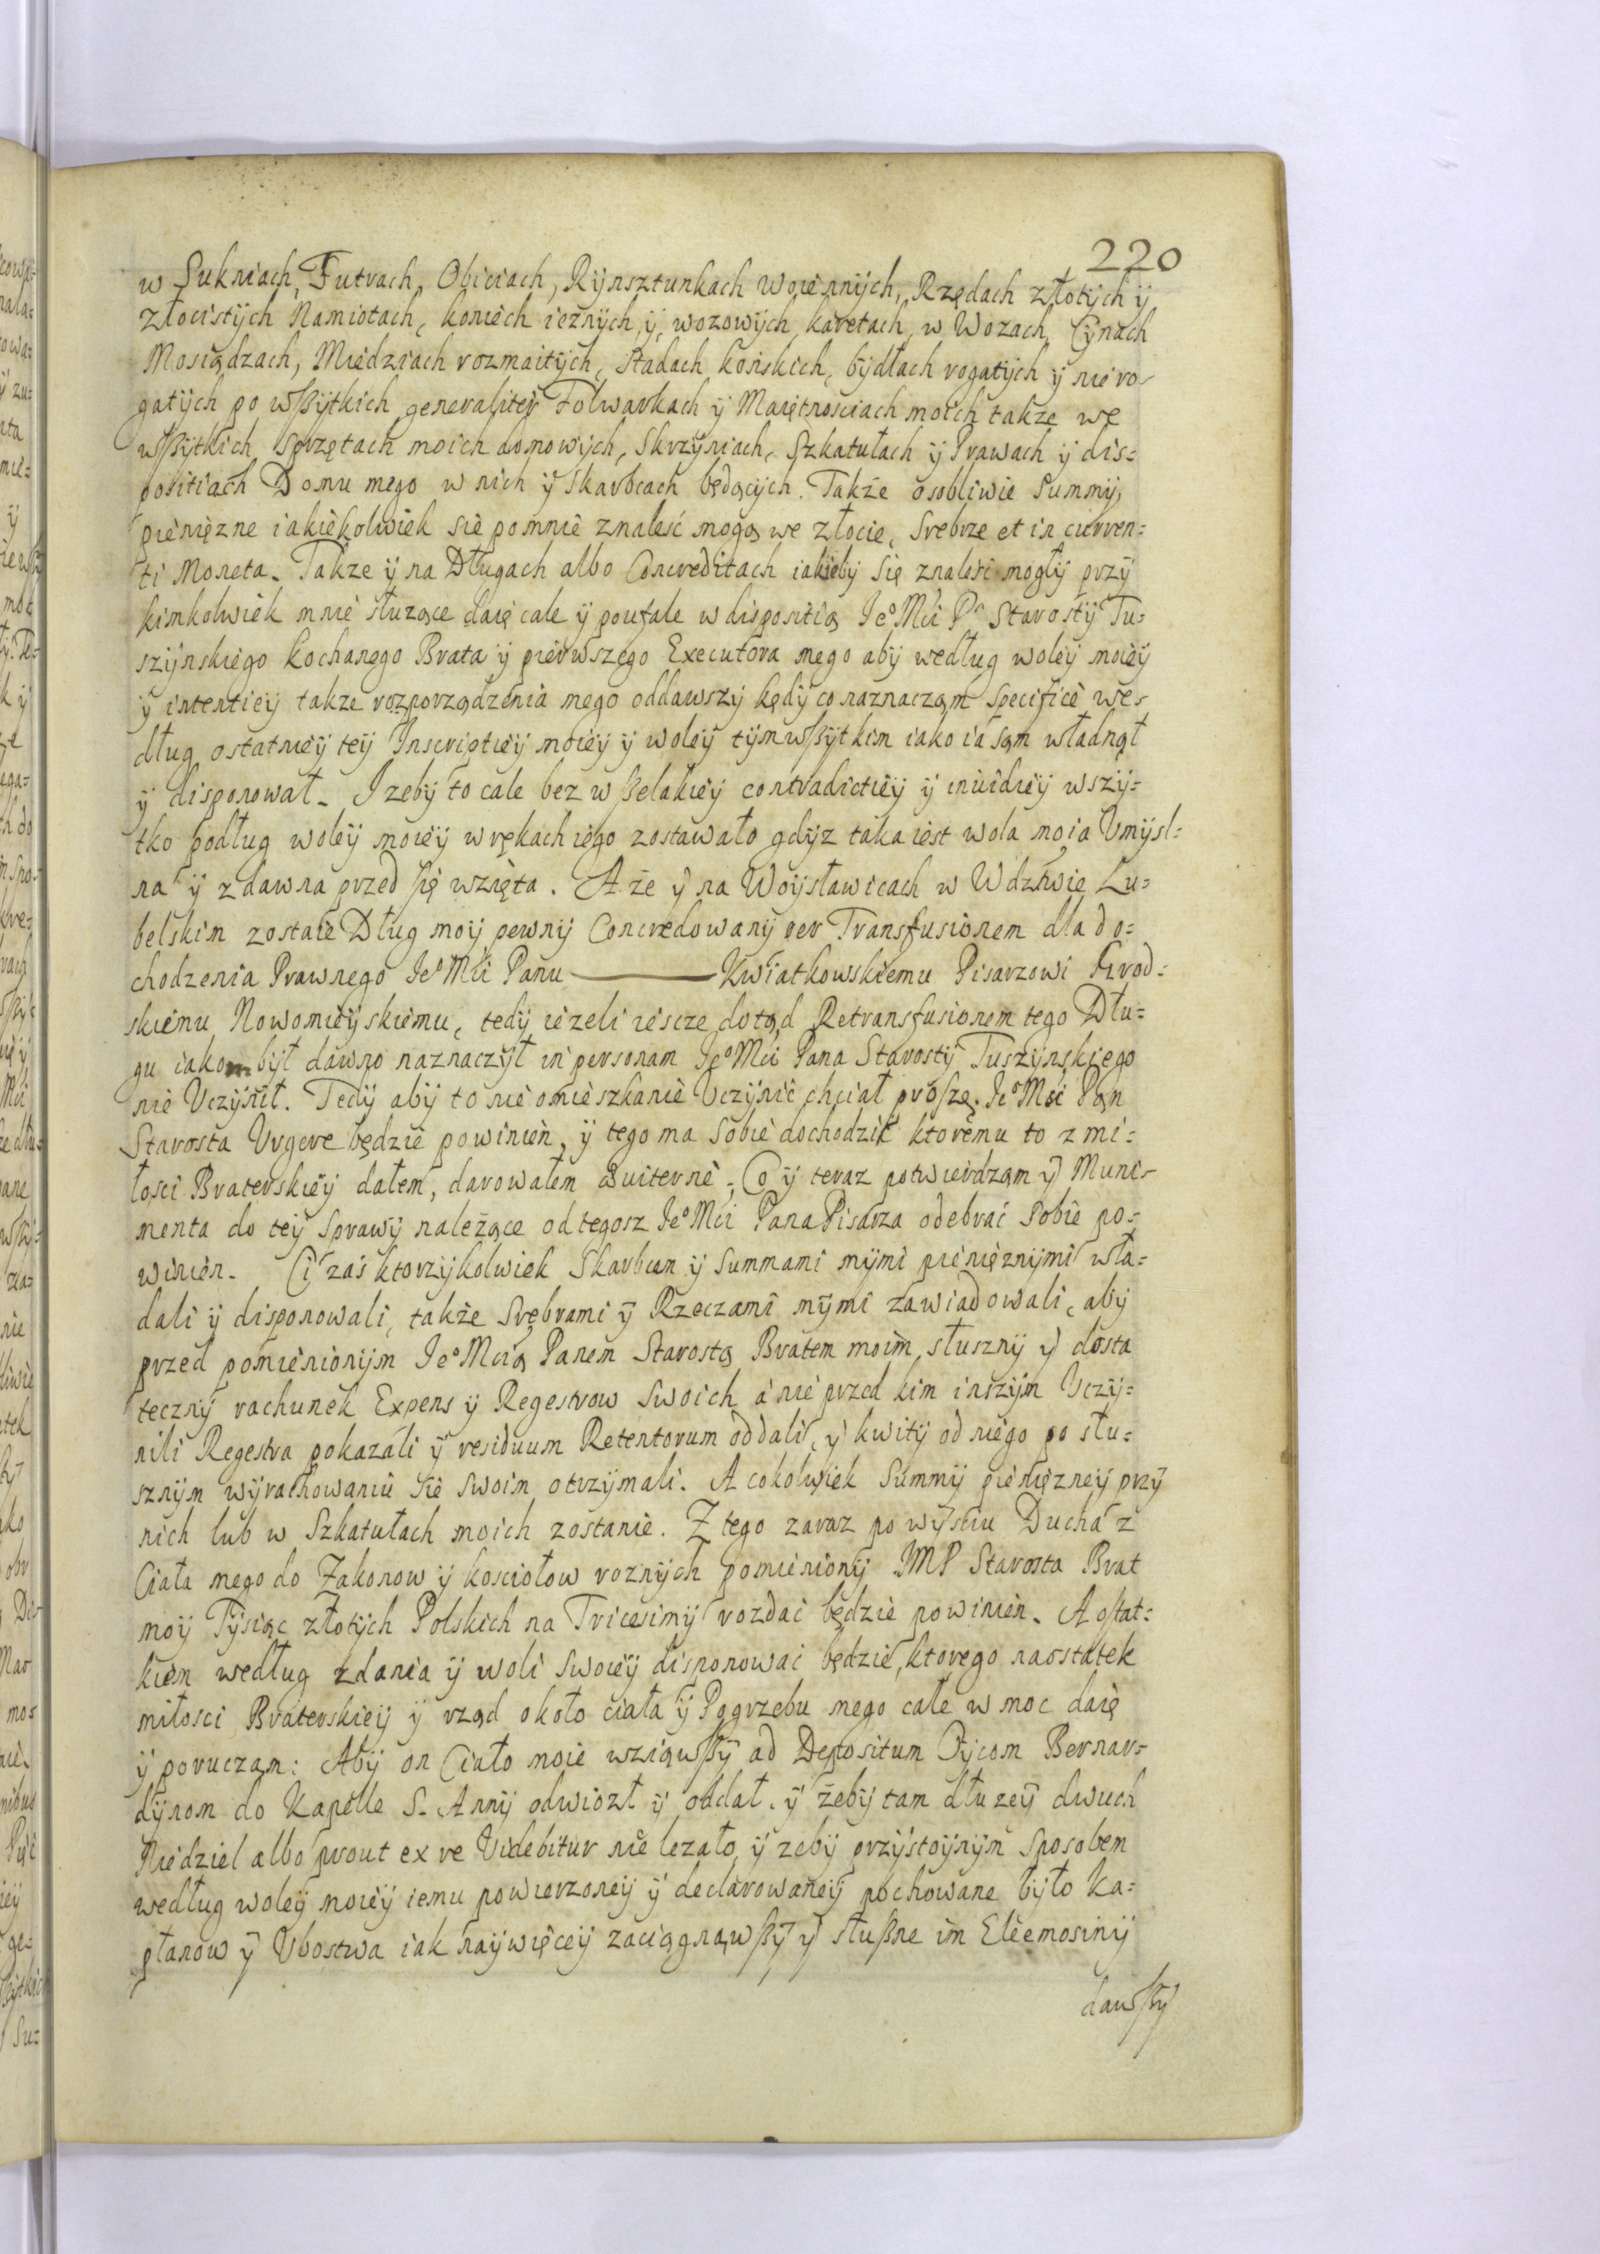 220
w Sukniach, Futrach, Obiciach, Rÿnsztunkach woiennÿch, Rzędach złotÿch ÿ
złocistÿch Namiotach, koniech ieznÿch, ÿ, wozowÿch karetach, w Wozach, Cÿnach
Mosiądzach, Miedziach rozmaitÿch, stadach końskich, bÿdłach rogatÿch ÿ niero-
gatÿch po wßÿtkich generaliter Folwarkach ÿ Maiętnosciach moich takze we
wßÿtkich sprzętach moich domowÿch, Skrzÿniach, Szkatułach ÿ Prawach ÿ dis=
positiach Domu mego w nich ÿ Skarbcach będącÿch. Także osobliwie Summÿ,
pieniężne iakiekolwiek się pomnie znaleść mogą we złocie, srebrze et in curren=
ti Moneta. Takze ÿ na Długach albo Concreditach iakieby się znaleść mogłÿ przÿ
kimkolwiek mnie służące daię cale ÿ poufale w dispositią Jeº Mci Pª Starostÿ Tu=
szÿnskiego kochanego Brata ÿ pierwszego Executora mego abÿ według woleÿ moieÿ
ÿ intentieÿ takze rozporządzenia mego oddawszÿ kędÿ co naznaczam specifice we-
dług ostatnieÿ teÿ Inscriptieÿ moieÿ ÿ woleÿ tÿmwßÿtkim iako ia sam władnął
ÿ disponował. I zebÿ to cale bez wßelakieÿ contradictieÿ ÿ inuidieÿ wszÿ=
tko podług woleÿ moieÿ w rękach iego zostawało gdÿz taka iest wola moia Vmÿsl=
na ÿ zdawna przed się wzięta. A że ÿ na Woÿsławicach w Wdztwie Lu=
belskim zostaie Dług moÿ pewnÿ Concredowanÿ per Transfusionem dla do=
chodzenia Prawnego Jeº Mci Panu ——— Kwiatkowskiemu Pisarzowi Grod=
skiemu Nowomieÿskiemu, tedÿ iezeli iescze dotąd Retransfusionem tego Dłu=
gu iakom bÿł dawno naznaczÿł in personam Jeº Mci Pana Starostÿ Tuszÿnskiego
nie Vczÿnił. Tedÿ abÿ to nie omieszkanie Vczÿnić chciał proszę. Jeº Mci Pan
Starosta Vrgere będzie powinien, ÿ tego ma sobie dochodzić ktoremu to z mi=
łosci Braterskieÿ dałem, darowałem Quiternè. Co ÿ teraz potwierdzam ÿ Muni-
menta do teÿ sprawÿ należące od tegosz Jeº Mci Pana Pisarza odebrać sobie po=
winien. Ci zaś ktorzÿkolwiek Skarbem ÿ Summami mÿmi pieniężnÿmi wła=
dali ÿ disponowali, także srebrami ÿ Rzeczami mÿmi zawiadowali, abÿ
przed pomienionÿm Jeº Mcią Panem Starostą Bratem moim, słusznÿ ÿ dosta
tecznÿ rachunek Expens ÿ Regestrow swoich a nie przed kim inszÿm Vczÿ=
nili Regestra pokazali ÿ residuum Retentorum oddali, ÿ kwitÿ od niego po słu=
sznÿm wÿrachowaniu się swoim otrzÿmali. A cokolwiek Summÿ pieniężneÿ przÿ
nich lub w Szkatułach moich zostanie. Z tego zaraz po wÿściu Ducha z
Ciała mego do Zakonow ÿ kosciołow roznÿch pomienionÿ JMP Starosta Brat
moÿ Tÿsiąc złotÿch Polskich na Tricesimÿ rozdać będzie powinien. A ostat=
kiem według zdania ÿ woli swoieÿ disponowac będzie, ktorego naostatek
miłosci Braterskieÿ ÿ rząd około ciała ÿ Pogrzebu mego cale w moc daię
ÿ poruczam: Abÿ on Ciało moie wziąwßÿ ad Depositum Oÿcom Bernar-
dÿnom do Kapelle S. Annÿ odwiozł ÿ oddał. ÿ żebÿ tam dłuzeÿ dwuch
Niedziel albo prout ex re Videbitur nie lezało, ÿ zebÿ przÿstoÿnÿm sposobem
według woleÿ moieÿ iemu powierzoneÿ ÿ declarowaneÿ pochowane bÿło ka=
płanow ÿ Vbostwa iak naÿwięceÿ zaciągnąwßÿ ÿ słußne im Eleemosinÿ
dawßÿ